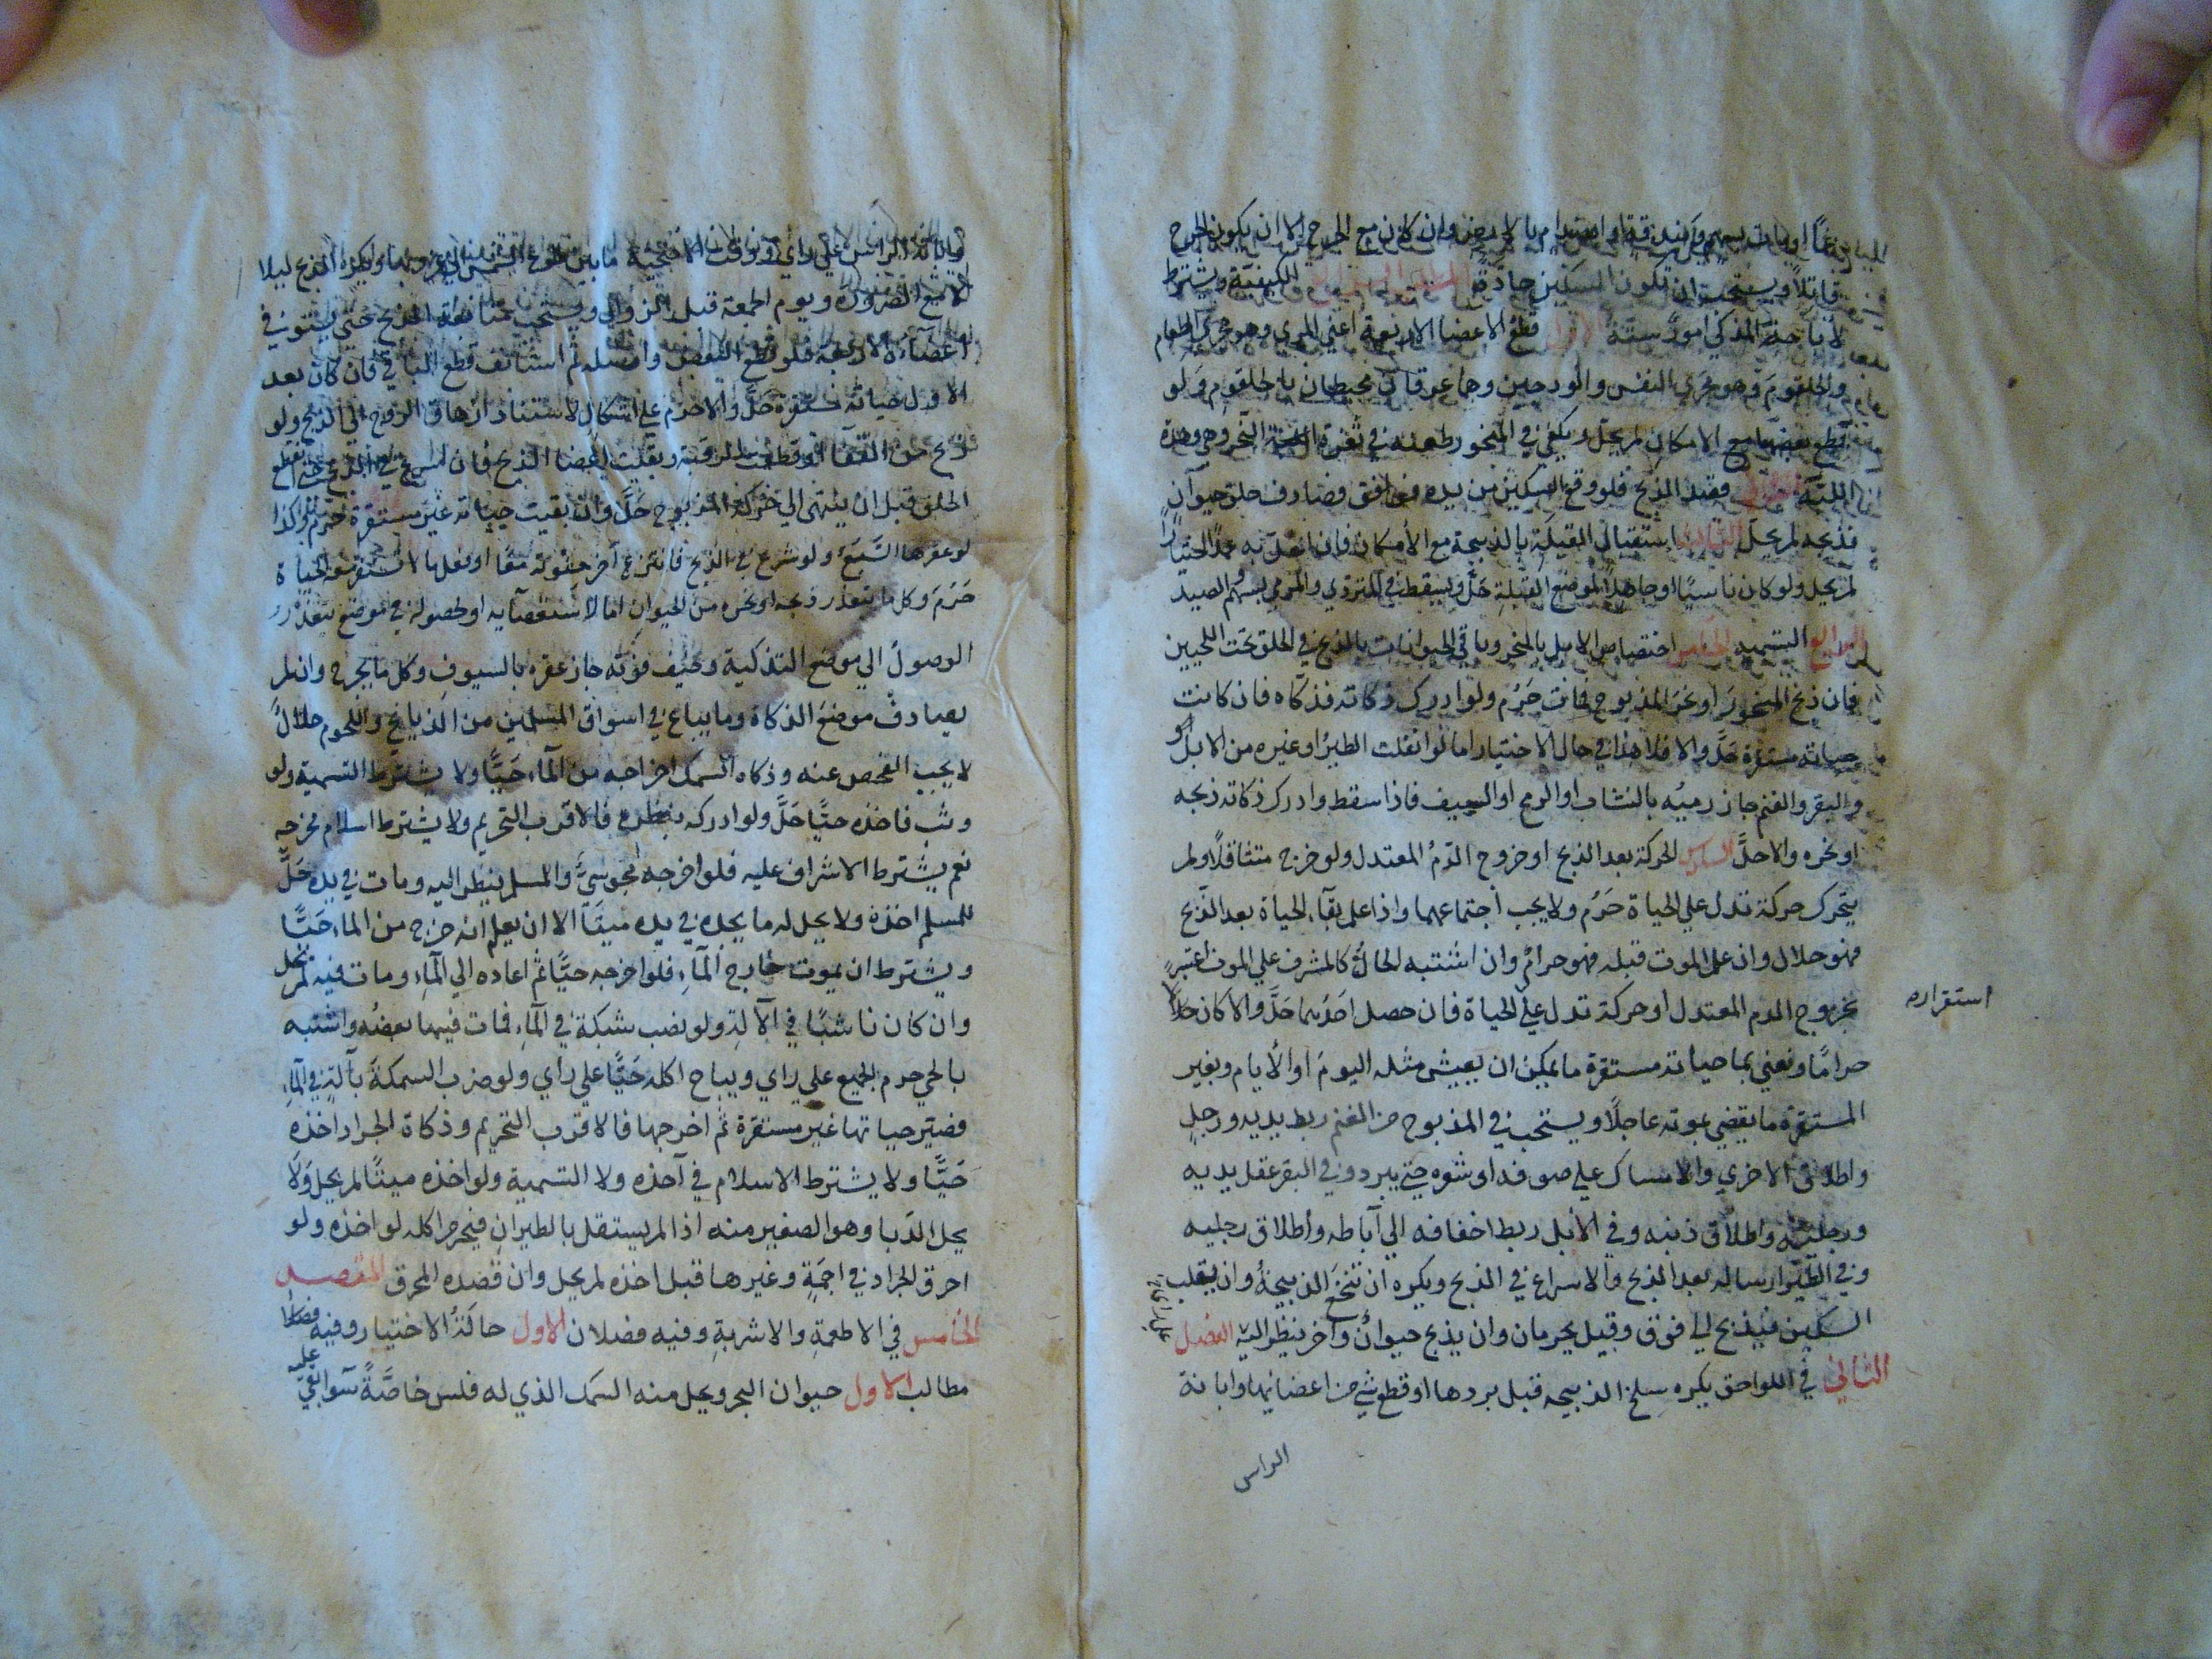 قاتلا ويستحب ان تكون السكين حادة المطلب الكيفية ويشترط
لاباحة المذكي امور ستة الاول قطع الاعضا الاربعة اعني المري وهو مجري الطعام
والحلقوم وهو مجري النفس والودجين وهما عرقان محيطان بالحلقوم ولو
قطع بعضها مع الامكان لم يحل ويكفي في المنحور طعنه في ثغرة النحر وهي وهدة
اللبة فصد الذبح فلو وقع السكين من يده فصادف حلق حيوان
فذبحه لم يحل الثالث استقبال القبلة بالذبيحة مع الامكان فان اخل به عمدا اختيارا
لم يحل ولو كان ناسيا او جاهلا لموضع القبلة حل ويسقط في المتردي والمرمي بسهم الصيد
الرابع التسمية الخامس اختصاص الابل بالنحر وباقي الحيوانات بالذبح في الحلق تحت اللحيين
فان ذبح المنحور او نحر المذبوح فمات حرم ولو ادرك ذكاته فذكاه فان كانت
حياته مستقرة حل والا فلا هذا في حال الاختيار اما لو انفلت الطير او غيره من الابل او
والبقر والغنم جاز رميه بالنشاب او الرمح او السيف فاذا سقط وادرك ذكاته ذبحه
او نحره والا حل السادس الحركة بعد الذبح او خروج الدم المعتدل ولو خرج متثاقلا ولم
يتحرك حركة تدل علي الحياة حرم ولا يجب اجتماعهما واذا علم بقآء الحياة بعد الذبح
فهو حلال وان علم الموت قبله فهو حرام وان اشتبه الحال كالمشرف علي الموت اعتبر
استقراره
بخروج الدم المعتدل او حركة تدل علي الحياة فان حصل احدهما حل والا كان حلالا
حراما ونعني بما حياته مستقرة ما يمكن ان يعيش مثله اليوم او الايام وبغير
المستقرة ما يقضي بموته عاجلا ويستحب في المذبوح من الغنم ربط يديه ورجل
واطلاق الاخري والامساك علي صوفه او شعره حتي يبرد وفي البقر عقل يديه
ورجليه واطلاق ذنبه وفي الابل ربط اخفافه الي آباطه واطلاق رجليه
وفي الطير ارساله بعد الذبح والاسراع في الذبح ويكره ان تنخع الذبيحة وان يقلب
السكين فيذبح الي فوق وقيل يحرمان وان يذبح حيوان وآخر ينظر اليه الفصل
الثاني في اللواحق يكره سلخ الذبيحة قبل بردها او قطع شي من اعضائها وابانة
الراس
الا مع الضرورة ويوم الجمعة قبل الزوال ويستحب متابعة الذبح حتي يستوفي
اعضاءه الاربعة فلو قطع البعض وارسله ثم استانف قطع الباقي فان كان بعد
الاول حياته مستقرة حل والا حرم علي اشكال لاستناد ازهاق الروح الي الذبح ولو
ذبح من القفا وبقيت اعضا الذبح فان اسرع في الذبح حتي انقطع
الحلق قبل ان ينتهي الي حركة المذبوح حل وان بقيت حياته غير مستقرة حرم وكذا
لو عقرها السبع ولو شرع في الذبح فانتزع آخر حشوته معا او فعل ما لا تستقر معه الحياة
حرم وكل ما يتعذر ذبحه او نحره من الحيوان اما لاستعصآيه او لحصوله في موضع يتعذر
الوصول الي موضع التذكية وخيف فوته جاز عقره بالسيوف وكل ما يجرح وان لم
يصادف موضع الذكاة وما يباع في اسواق المسلمين من الذبايح واللحوم حلال
لا يجب الفحص عنه وذكاه السمك اخراجه من المآء حيا ولا يشترط التسمية ولو
وثب فاخذه حيا حل ولو ادركه بنظره فالاقرب التحريم ولا يشترط اسلام مخرجه
نعم يشترط الاشراف عليه فلو اخرجه مجوسي والمسلم ينظر اليه ومات في يده حل
للمسلم اخذه ولا يحل له ما يجده في يده ميتا الا ان يعلم انه خرج من الماء حيا
ويشترط ان يموت خارج المآء فلو اخرجه حيا ثم اعاده الي المآء ومات فيه لم يحل
وان كان ناشبا في الآلة ولو نصب شبكة في المآء فمات فيها بعضه واشتبه
بالحي حرم الجميع علي راي ويباح اكله حيا علي راي ولو ضرب السمكة بآلة في المآء
فصير حياتها غير مستقرة ثم اخرجها فالاقرب التحريم وذكاة الجراد اخذه
حيا ولا يشترط الاسلام في آخذه ولا التسمية ولو اخذه ميتا لم يحل ولا
يحل الدبا وهو الصغير منه اذا لم يستقل بالطيران فيحرم اكله لو اخذه ولو
احرق الجراد في اجمة وغيرها قبل اخذه لم يحل وان قصده المحرق المقصد
الخامس في الاطعمة والاشربة وفيه فصلان الاول حالة الاختيار وفيه
مطالب الاول حيوان البحر ويحل منه السمك الذي له فلس خاصة سوا بقي عليه